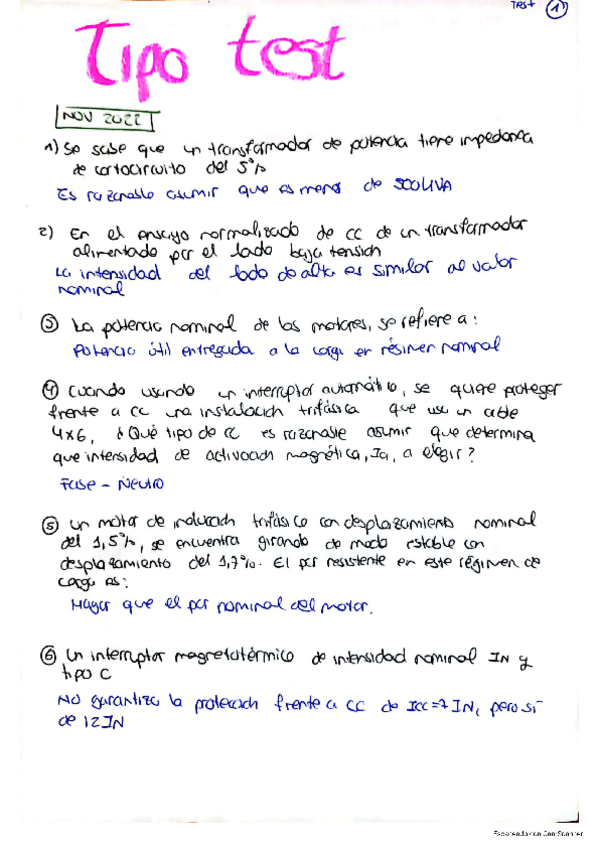 Test 1
Tipo test
NOV 2022
1) Se sabe que un transformador de potencia tiene impedancia
de cortocircuito del 5%
Es razonable asumir que es menor de 500kVA
2) En el ensayo normalizado de CC de un transformador
alimentado por el lado baja tension
La intensidad del lado de alta es similar al valor
nominal
③ La potencia nominal de los motores, se refiere a:
Potencia útil entregada a la carga en régimen nominal
④ Cuando usando un interruptor automático, se quiere proteger
frente a CC una instalacion trifásica que usa un cable
4x6, ¿Qué tipo de CC es razonable asumir que determina
que intensidad de activacion magnética, Ia, a elegir?
Fase - Neutro
⑤ Un motor de induccion trifásico con desplazamiento nominal
del 1,5%, se encuentra girando de modo estable con
desplazamiento del 1,7%. El par resistente en este régimen de
carga es:
Mayor que el par nominal del motor.
⑥ Un interruptor magnetotérmico de intensidad nominal IN y
tipo C
No garantiza la proteccion frente a CC de Icc=7 IN, pero sí
de 12IN
Escaneado con CamScanner